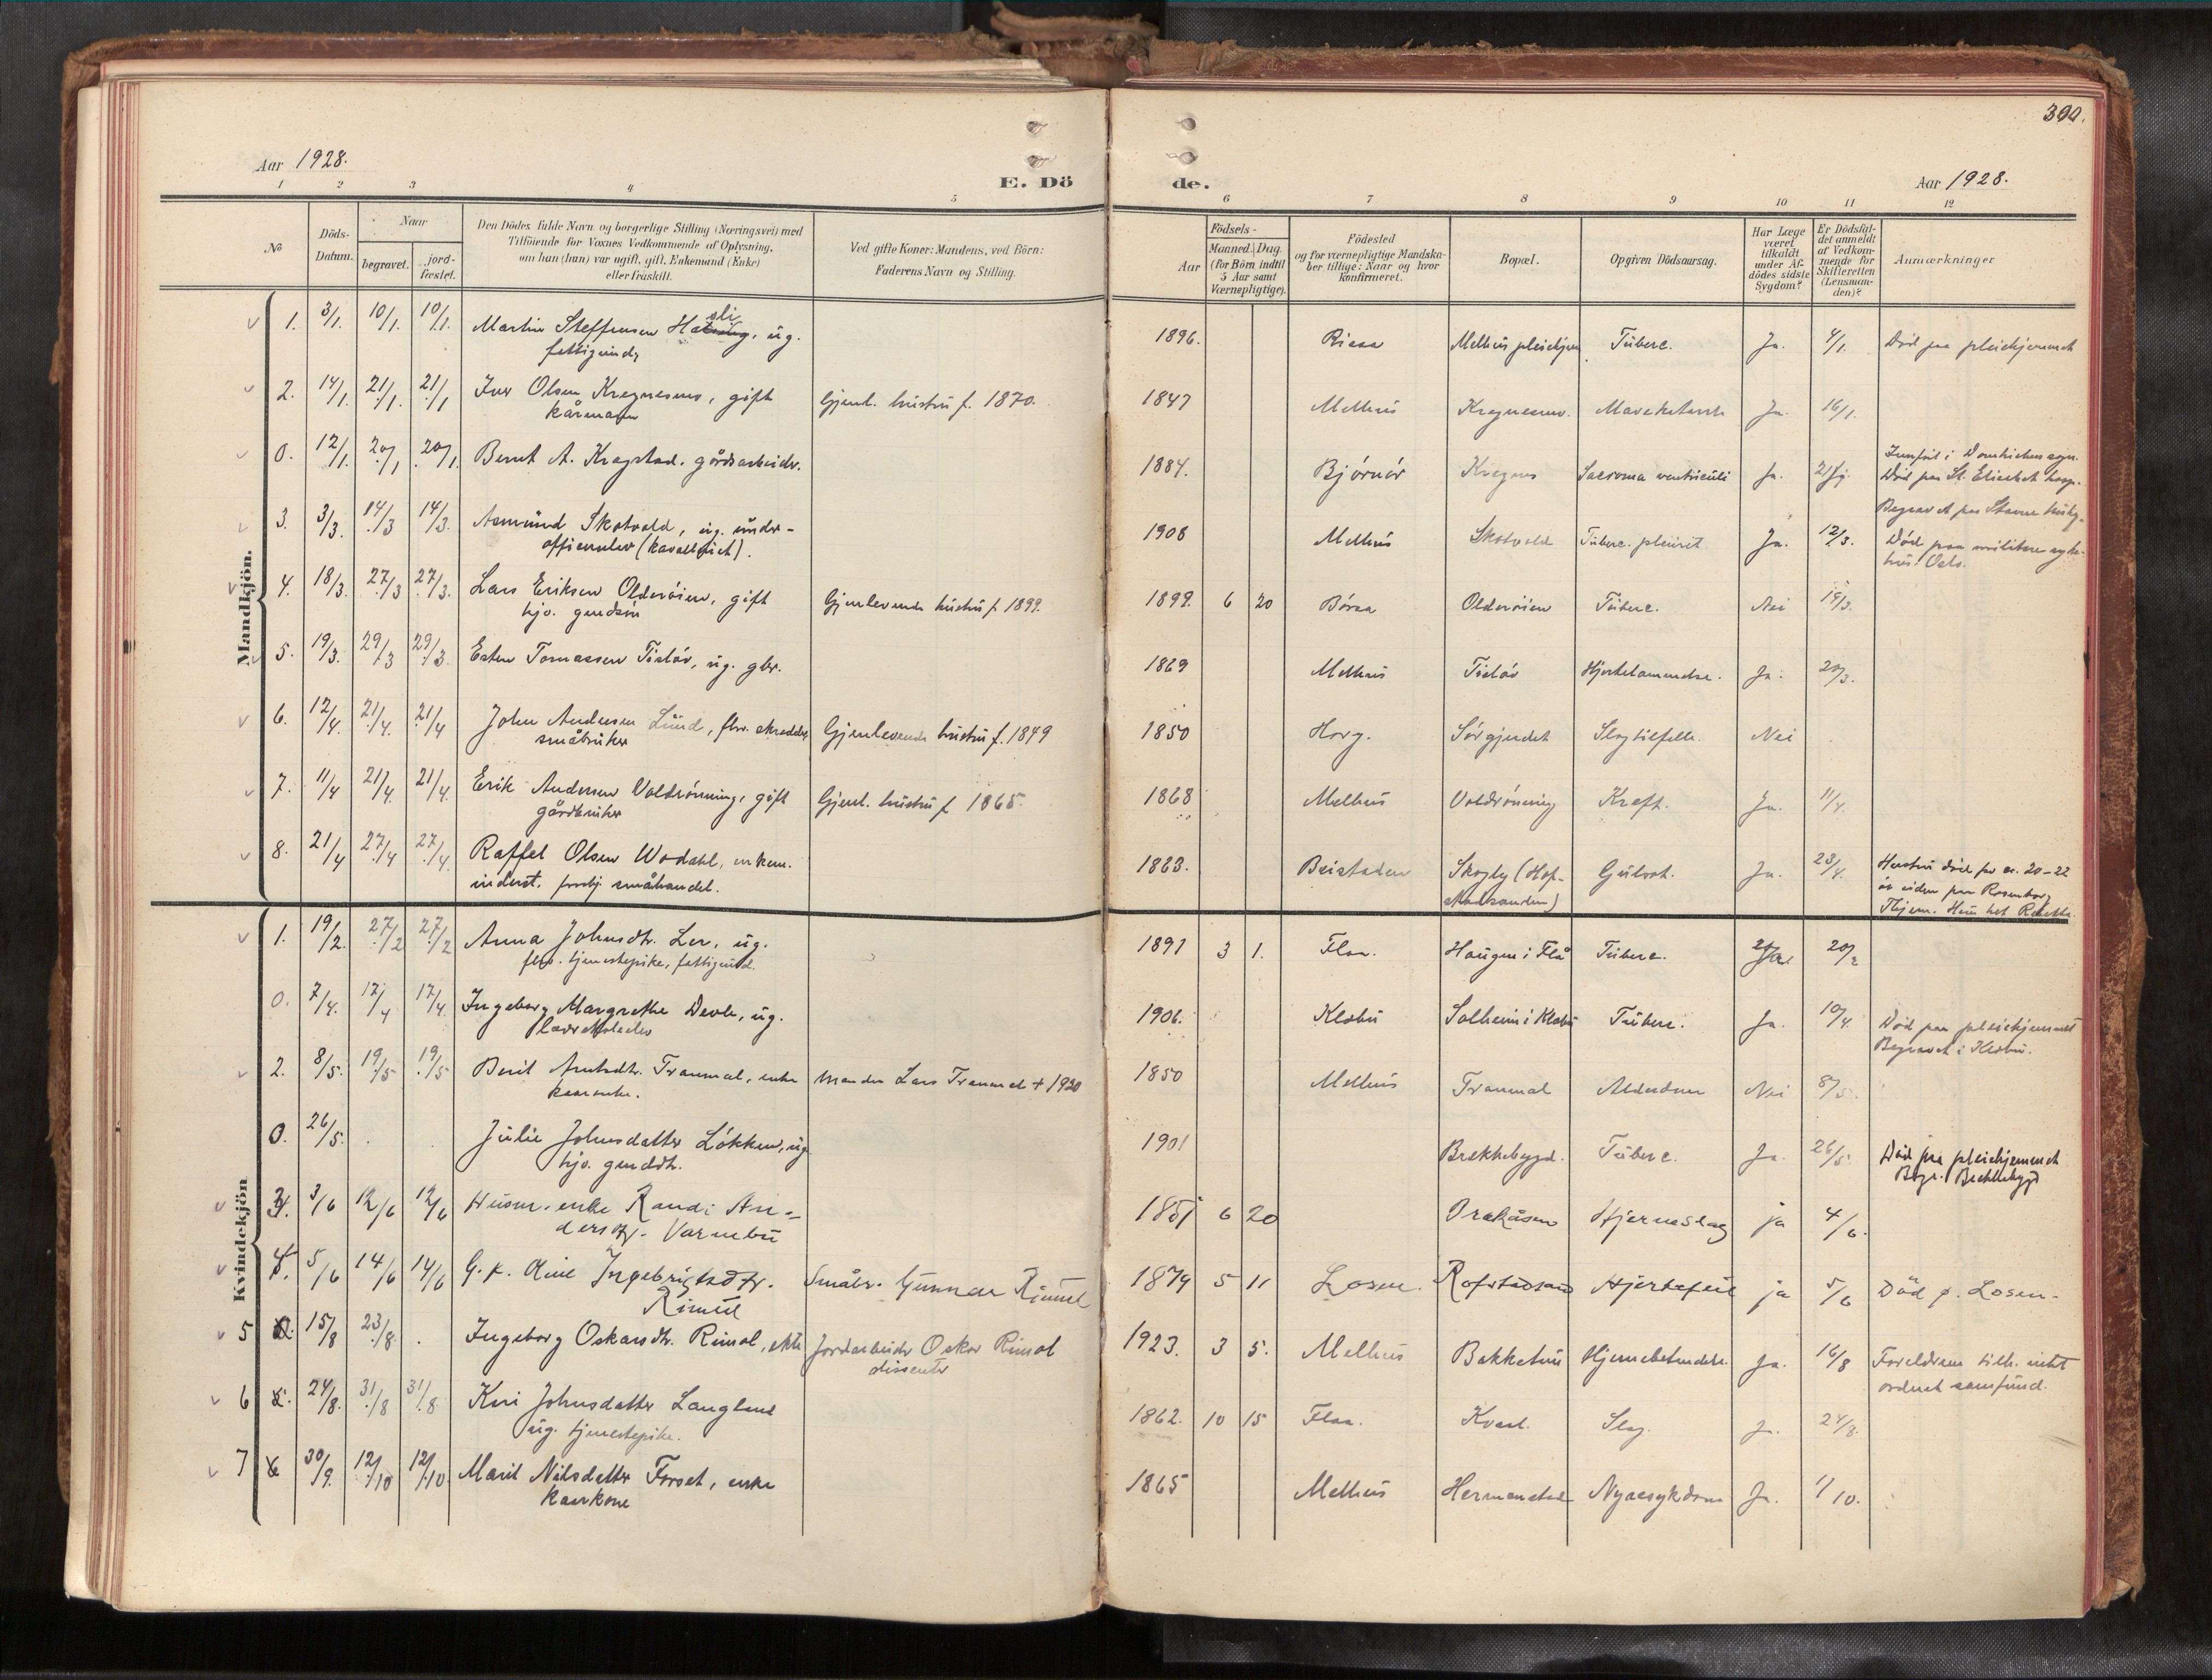 390.
Aar 1928.
E. Döde.
Aar 1928.
1 2 3 4 5 6 7 8 9 10 11 12
№
Döds-Datum.
Naar
begravet.
jordfæstet.
Den Dödes fulde Navn og borgerlige Stilling (Næringsvei) med
Tilföiende for Voxnes Vedkommende af Oplysning,
om han (hun) var ugift, gift, Enkemand (Enke)
eller fraskilt.
Ved gifte Koner: Mandens, ved Börn:
Faderens Navn og Stilling.
Födsels-
Aar
Maaned. Dag.
(for Börn indtil
5 Aar samt
Værnepligtige).
Födested
og for værnepligtige Mandska-
ber tillige: Naar og hvor
konfirmeret.
Bopæl.
Opgiven Dödsaarsag.
Har Læge
været
tilkaldt
under Af-
dödes sidste
Sygdom?
Er Dödsfal-
det anmeldt
af Vedkom-
mende for
Skifteretten
(Lensman-
den)?
Anmærkninger
Mandkjön.
1. 3/1. 10/1. 10/1. Martin Steffensen , ug. 1896. Rissa Melhus pleiehjem Tuberc. Ja. 4/1. Död paa pleiehjemmet
2. 14/1. 21/1. 21/1 Iver Olsen Kregnesmo, gift Gjenl. hustru f. 1870. 1847 Melhus Kregnesmo. Ja. 16/1.
kårmann
0. 12/1. 20/1 20/1. Bernt A. Kragstad, gårdsarbeider. 1884. Bjørnør Kregnes ventriculi Ja. Domkirkens sogn.
Död paa St. Elisabet hosp.
Begravet paa Stavne
3. 3/3. 14/3 14/3. Asmund Skotvold, ug. under- 1908 Melhus Skotvold Tuberc. pleurit Ja. 12/3. Död paa militære syke-
offiserselev (kavalleriet). hus. Oslo.
4. 18/3. 27/3 27/3. Lars Eriksen Olderøien, gift Gjenlevende hustru f. 1899. 1899. 6 20 Børsa Olderøien Tuberc. Nei 19/3.
5. 19/3. 29/3 29/3. Esten Tomassen Tisløv, ug. gbr. 1869 Melhus Tisløv Hjertelammelse. Ja. 20/3.
6. 12/4. 21/4. 21/4 John Andersen Lund, fhv. skredder, Gjenlevende hustru f. 1849 1850 Horg. Sørgjerdet Slagtilfelle Nei
småbruker
7. 11/4 21/4. 21/4. Erik Andersen Voldrønning, gift Gjenl. hustru f. 1865. 1868 Melhus Voldrønning Kreft. Ja. 11/4.
gårdbruker
8. 21/4 27/4 27/4. Raffel Olsen Wodahl, enkem. 1863. Beistaden Skogly (Hof- Gulsot. Ja. 23/4. Hustru död for ca. 20-22
inderst. småhandel. år siden paa Rosenborg
Kvindekjön
1. 19/2. 27/2 27/2 Anna Johnsdtr. Ler, ug. 1891 3 1. Flaa. Haugen i Flå Tuberc. 20/2
fhv. tjenestepike, fattigund.
0. 7/4. 17/4 17/4. Ingeborg Margrethe Devle, ug. 1906. Klæbu Solheim i Klæbu Tuberc. Ja. 10/4. Död paa pleiehjemmet
Begravet i Klæbu.
2. 8/5. 19/5 19/5 Berit Arntsdtr. Tranmæl, enke Manden Lars Tranmæl + 1920 1850 Melhus Tranmæl Alderdom Nei 8/5.
0. 26/5. Julie Johnsdatter Løkken, ug. 1901 Brekkebygd. Tuberc. Ja. 26/5 Död paa pleiehjemmet
Begr. Brekkebygd
3. 3/6 12/6 12/6 Husm. enke Randi An- 1851 6 20 Hjerneslag ja 4/6.
dersdtr. Varmbu
4. 5/6 14/6 14/6 G. k. Ingebrigtsdtr. Småbr. Gunnar Rimul 1879 5 11 Losen. Rofstadsand Hjertefeil ja 5/6 Död p. Losen.
Rimul
5 15/8 23/8. Ingeborg Oskarsdtr. Rimol, ekte Jordarbeider Oskar Rimol 1923. 3 5. Melhus Bakketun Hjernebetændelse. Ja. 16/8 Foreldrene tilh. intet
dissenter ordnet samfund.
6 24/8. 31/8 31/8 Kari Johnsdatter Langland 1862. 10 15 Flaa. Kvaal. Slag. Ja. 24/8.
ug. tjenestepike.
7 30/9. 12/10 12/10. Marit Nilsdatter Forset, enke 1865 Melhus Hermanstad Nyresykdom Ja. 1/10.
kaarkone